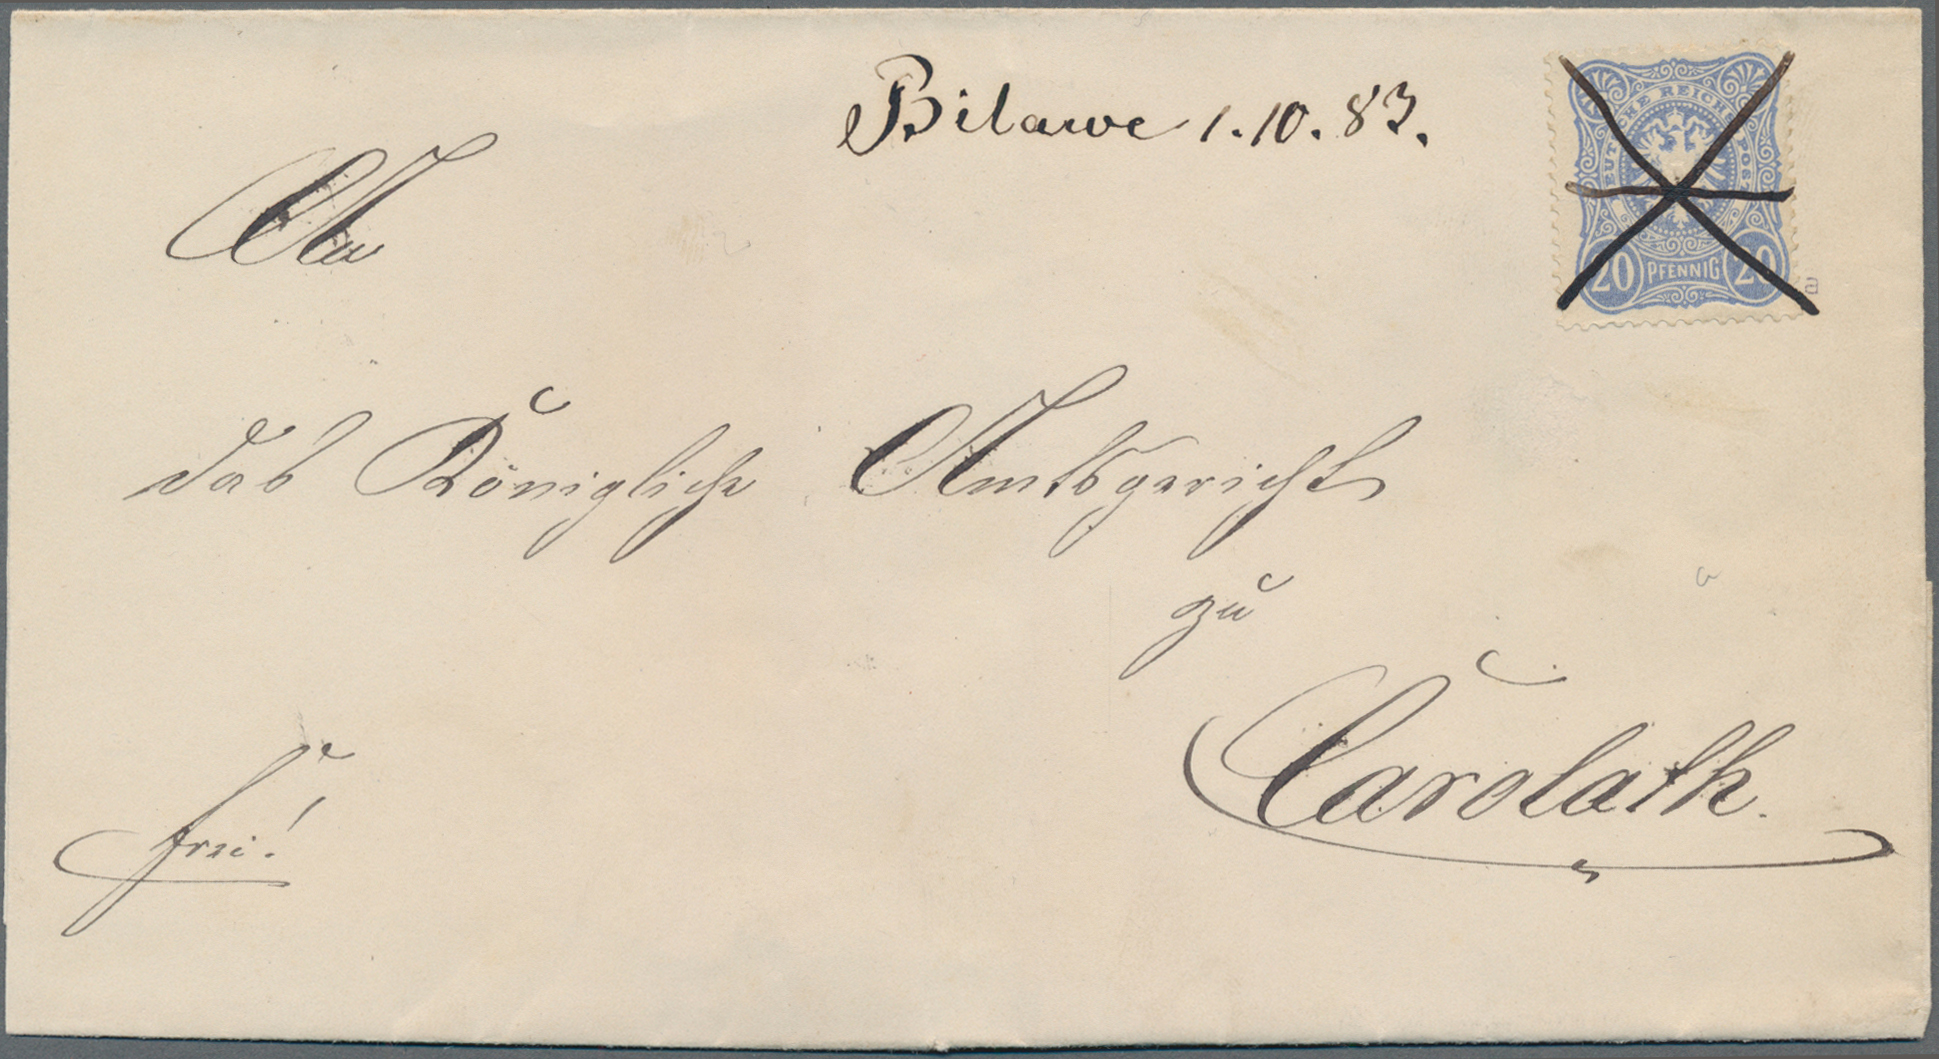 Bilawe 1.10.83.
DEUTSCHE REICHS-POST
20 PFENNIG 20
a
An
das Königliche Amtsgericht
zu
Carolath.
frei!